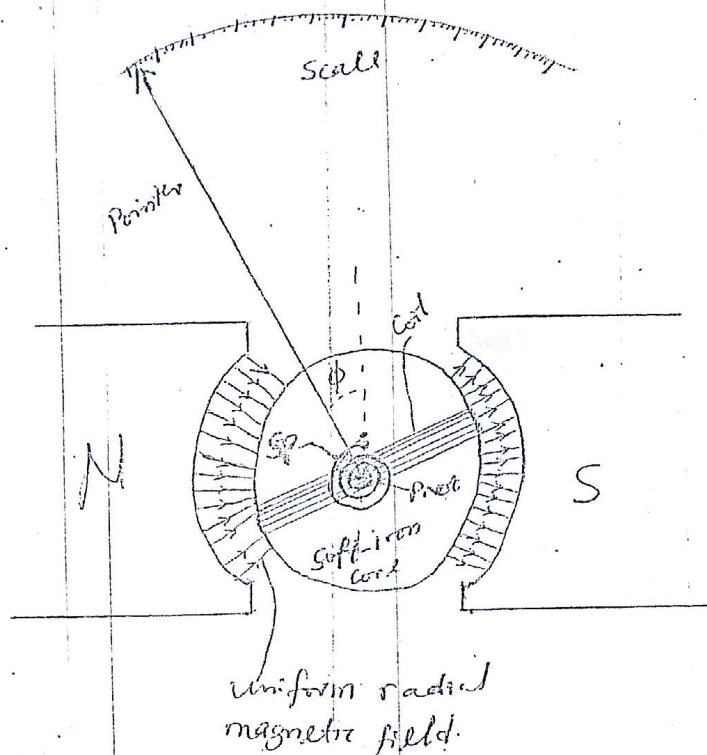 Scale
Pointer
Coil
ϕ
Sp
Pivot
N
S
Soft-iron
core
Uniform radial
magnetic field.